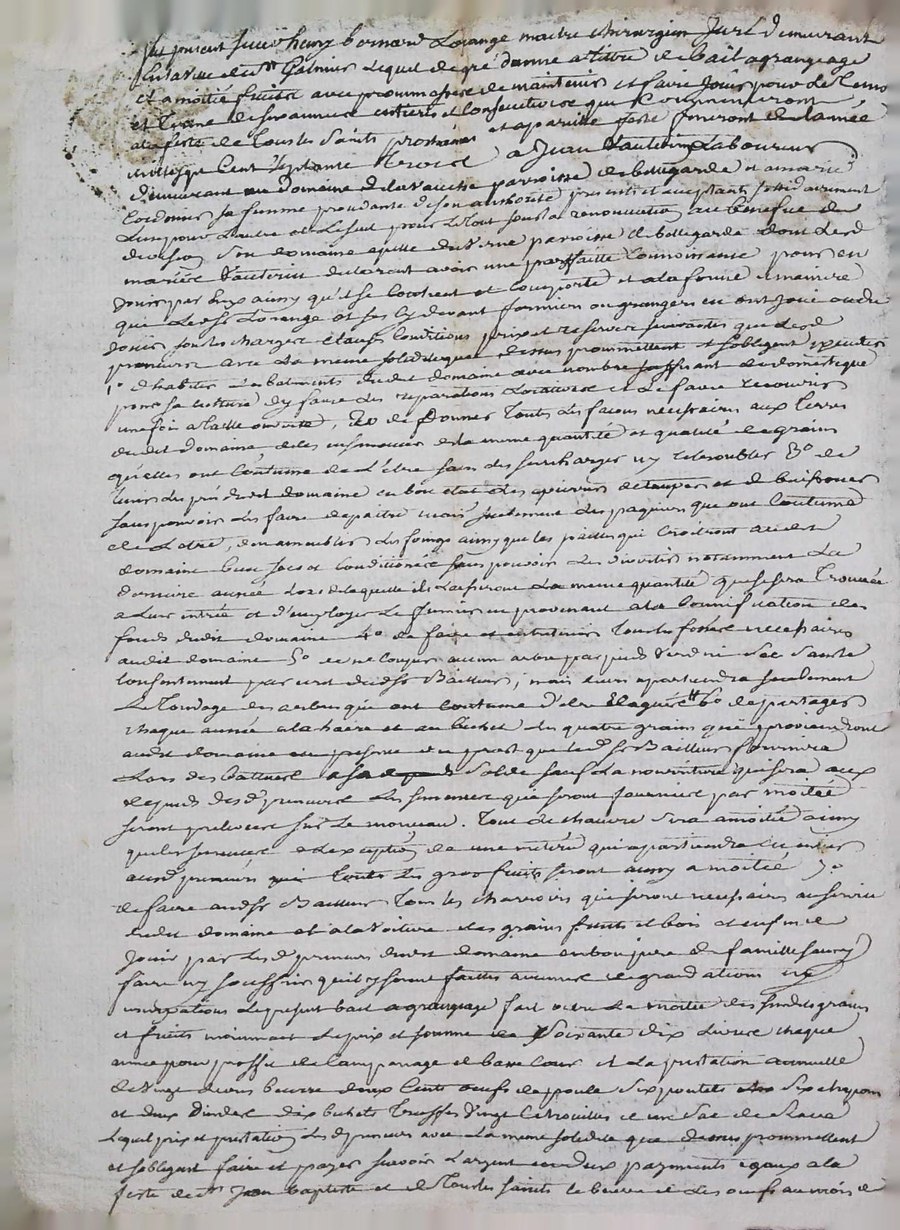 fut present sieur henry bernard Lorange maitre chirurgien Juré demeurant
en la ville de st Galmier lequel de gré donne a titre de bail a grangeage
et a moitié fruits avec promesse de maintenir et faire Jouir pour le tems
et terme de années entieres et consecutives qui Commenceront
a la feste de Tous les Saints prochaine et a pareille feste finiront de l'année
mil sept Cent Septante a Jean Vauterin Laboureur
demeurant au domaine de la parroisse de bellegarde et a marie
sa femme procedante de son authorité presents et acceptants
L'un pour L'autre et Le seul pour Le tout sous la renonciation au benefice de
division son domaine appellé du Verne parroisse de bellegarde dont Lesd
mariés Vauterin declarent avoir une parfaitte Connoissance pour en
Jouir par Eux ainsy qu'il se Contient et Comporte et a la forme et maniere
que Ledsr Lorange et ses cy devant fermiers ou grangers en ont Joui ou du
Jouir sous les charges clauses Conditions prix et reserves suivantes que Lesd
preneurs avec La meme solidité que dessus promettent et s'obligent executer
1o d'habiter Les batiments dudit domaine avec nombre suffisant de domestiques
pour sa culture d'y faire Les reparations Locatives et de faire recouvrir
une fois a taille ouverte, 2o de Donner Toutes Les façons necessaires aux terres
dudit domaine de les ensemencer de la meme quantité et qualité de grains
qu'elles ont Coutume de L'etre sans les surcharger ny dessoubler 3o de
tenir Les prés dudit domaine en bon etat des epierrer detauper et de buissonner
sans pouvoir Les faire depaitre mais seulement Les paquiers qui ont Coutume
de L'etre, d'en amoubler Les foings ainsy que les pailles qui Croitront audit
domaine bien secs et Conditionnés sans pouvoir Les divertir notamment La
derniere année Lors de laquelle ils Laisseront La meme quantité qui se sera Trouvée
a Leur entrée et d'employer Le fumier en provenant a la bonnification des
fonds dudit domaine 4o de faire et entretenir Tous les fossés necessaires
audit domaine 5o de ne Couper aucun arbre par pied Verd ni Sec sans le
Consentement par ecrit dudsr Bailleur, mais Leur apartiendra seulement
Le Tondage des arbres qui ont Coutume d'etre Elagués 6o de partager
chaque année a la haire et au bichet Les quatre grains qui proviendront
audit domaine en presence d'un que led Sr Bailleur fournira
Lors des batteures solde sauf La nourriture qui sera aux
depends desd preneurs Les semences qui seront fournies par moitié
seront prelevées sur Le monceau. Tout Le chanvre sera a moitié ainsy
que les semences a L'exception de une meterée qui apartiendra en entier
ausd preneurs Toutes Les gros fruits seront aussy a moitié 7o
de faire audsr Bailleur Tous les charrois qui seront necessaires au service
dudit domaine et a la Voiture des grains fruits et bois et enfin de
Jouir par Lesd preneurs dudit domaine en bon pere de famille sans y
faire ny souffrir qu'il y soient faittes aucunes degradations ny
usurpations Le present bail a grangeage fait outre La moitié des susdits grains
et fruits moiennant Le prix et somme de Soixante dix Livres chaque
année pour proffit de L'ampanage et basse Cour et La prestation annuelle
de Vingt Livres beurre deux Cents oeufs de poule Six poulets Six chapons
et deux d'indes dix bichets Truffes Vingt Citrouilles et un Sac de Raves
Lequel prix et prestation Lesd preneurs avec La meme solidité que dessus promettent
et s'obligent faire et payer sçavoir L'argent en deux payements egaux a la
feste de st Jean Baptiste et de Tous les saints Le beurre et Les oeufs au mois de